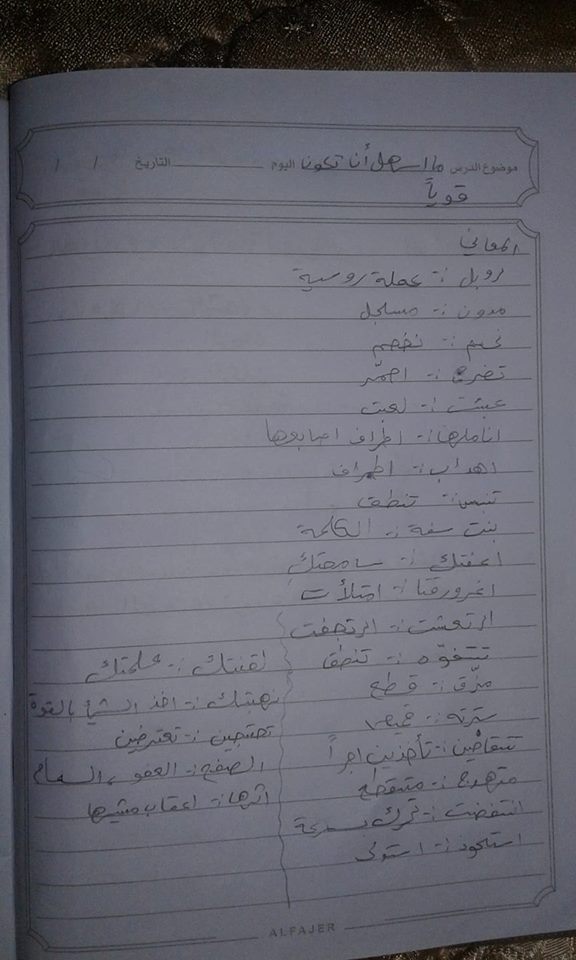 موضوع الدرس ما اسهل أنا تكونا اليوم التاريخ / /
قوياً
المعاني
روبل :- عملة روسية
مدون :- مسجل
نحسم :- نخصم
تضرج :- احمّر
عبثت :- لعبت
اناملها :- اطراف اصابعها
اهداب :- اطراف
تنبس :- تنطق
بنت شفة :- الكلمة
اعفتك :- سامحتك
اغرورقتا :- امتلأت
ارتعشت :- ارتجفت
تتفوّه :- تنطق
مزّق :- قطع
سترته :- قميص
تتقاضين :- تأخذين اجراً
متهدج :- متقطع
انتفضت :- تحرك بسرعة
استحوذ :- استولى
لقنتك :- علمتك
نهبتك :- اخذ الشيأ بالقوة
تحتجين :- تعترضين
الصفح :- العفو والسماح
اثرها :- اعقاب مشيها
ALFAJER